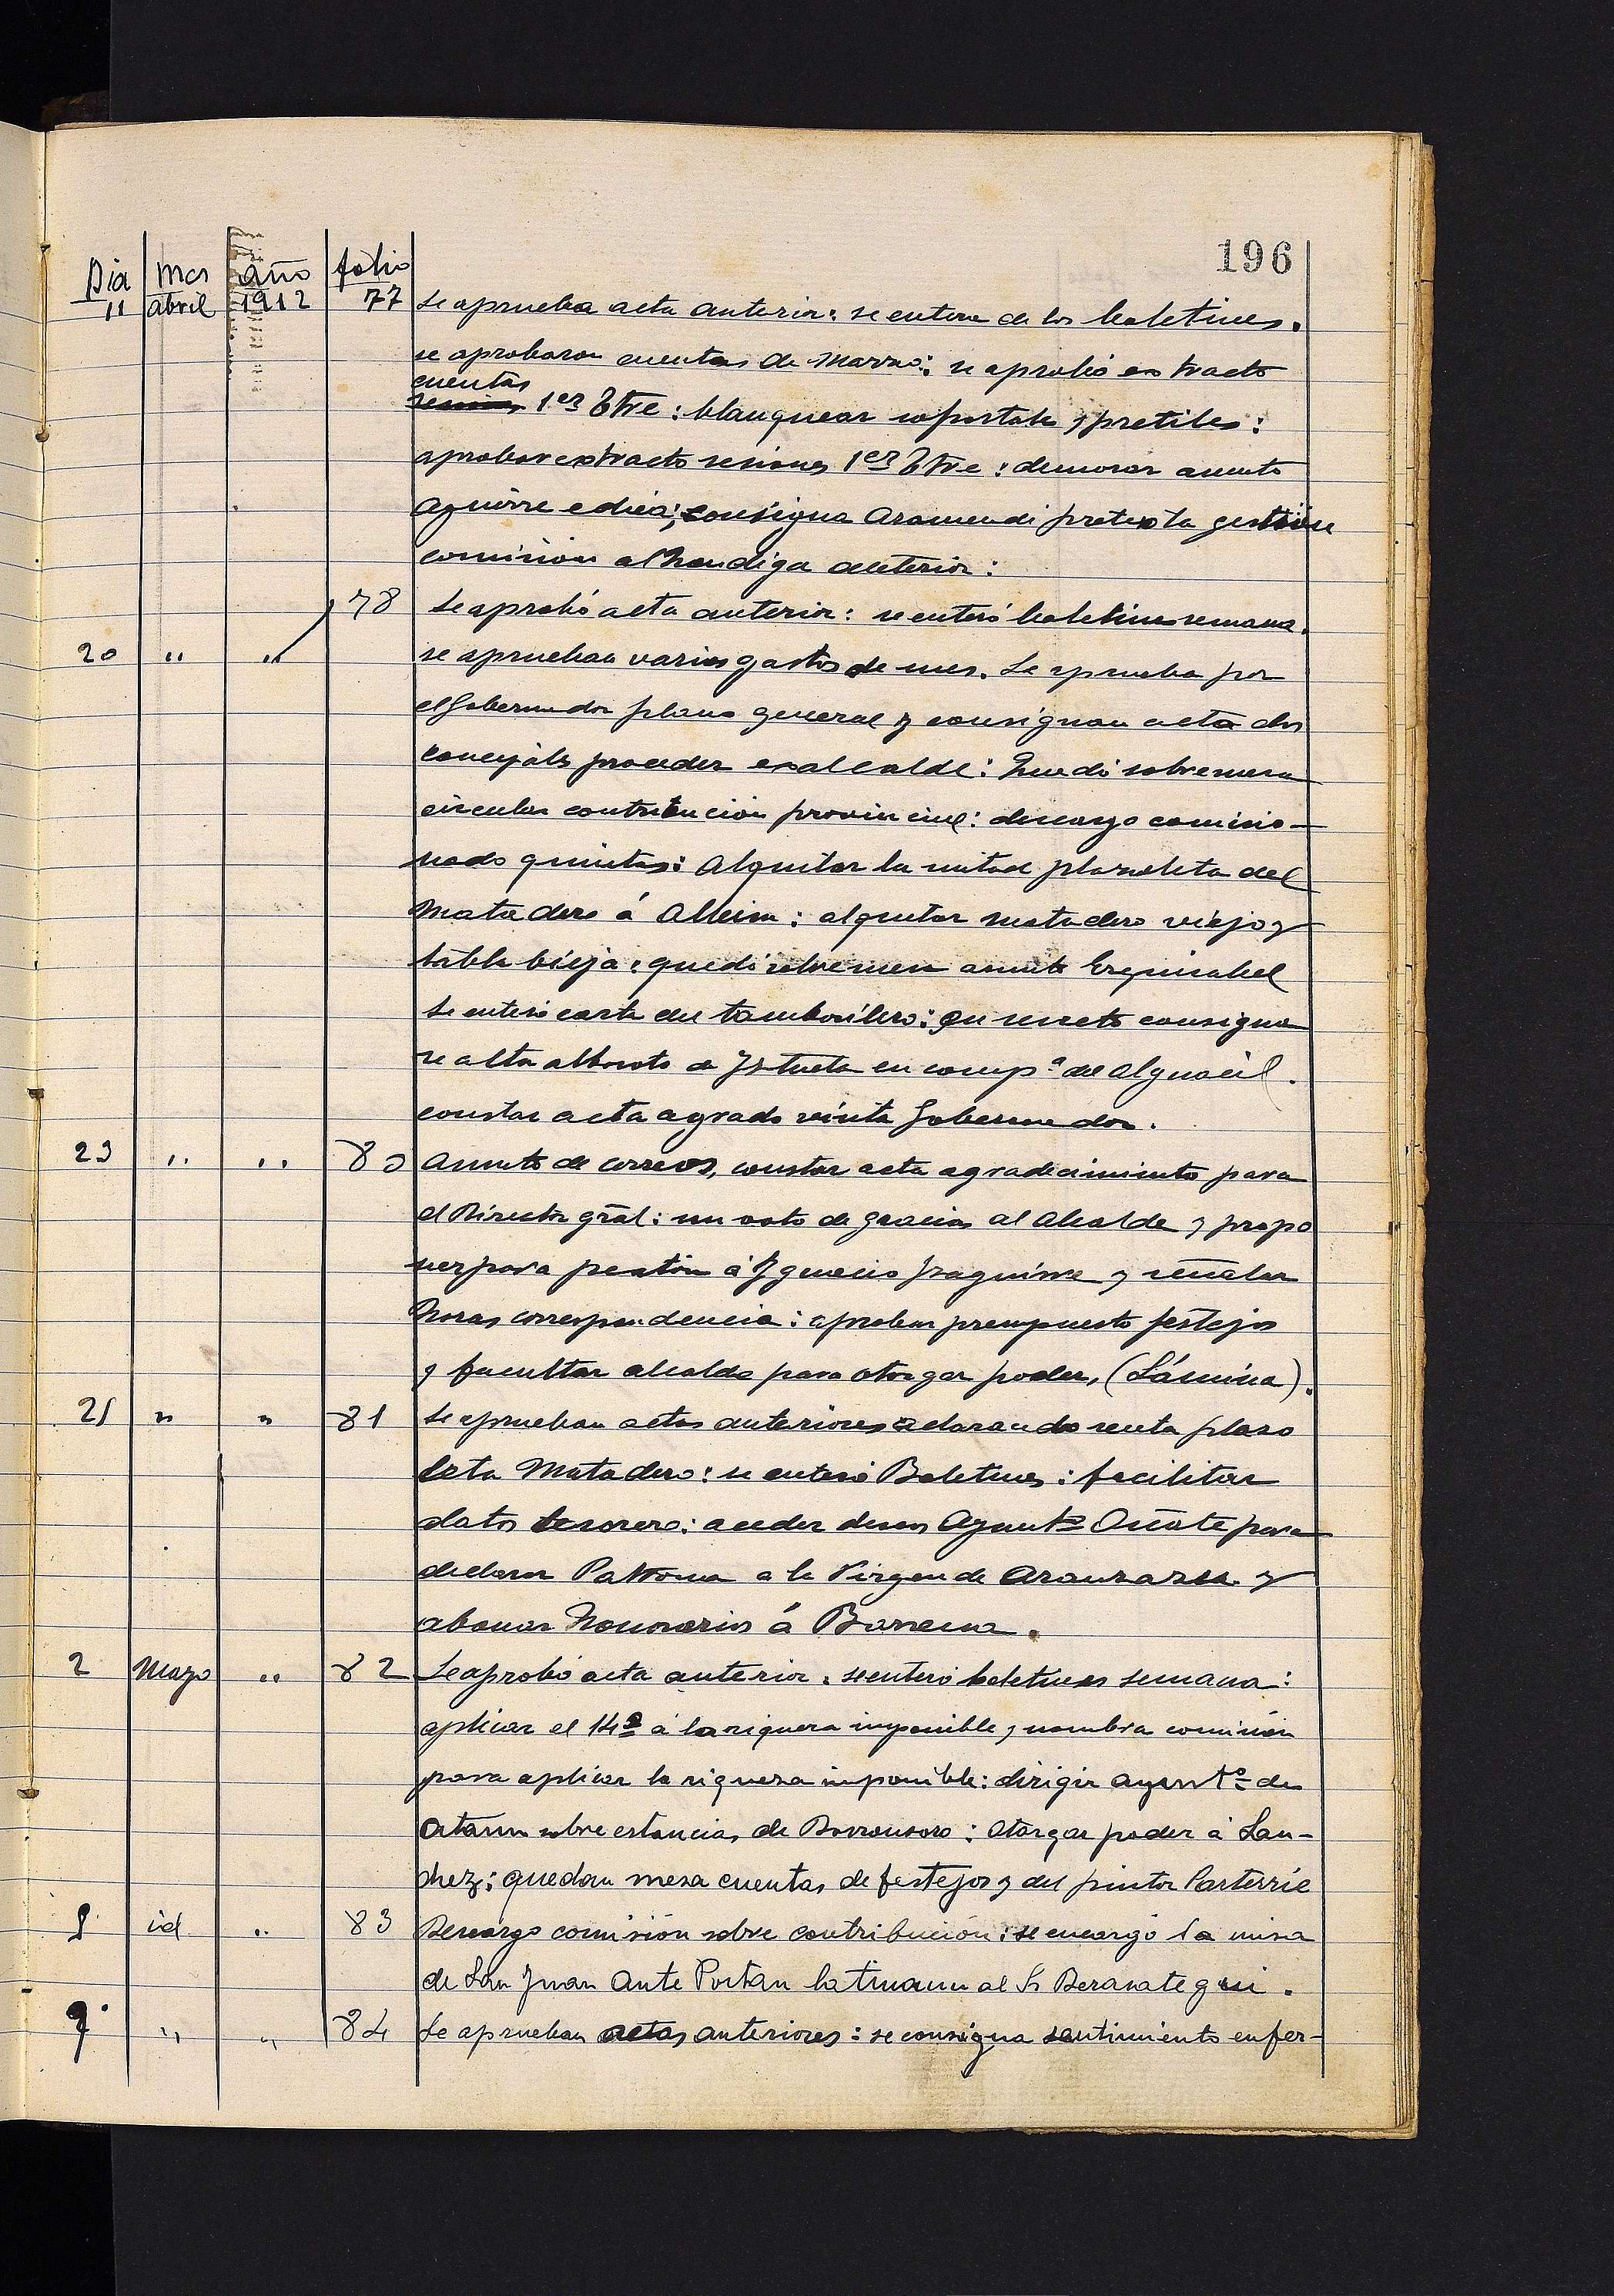 196
Dia mes año folio
11 abril 1912 77 Se aprueba acta anterior: se entera de los boletines.
se aprobaron cuentas de Marzo: se aprobó extracto
cuentas
1er Etre: blanquear soportales y pretiles:
aprobar extracto sesiones 1er Etre: demorar asunto
Aguirre edicá; consigna Aramendi protexta gestión
comision alhondiga anterior:
78 Se aprobó acta anterior: se enteró boletines semana.
20 " " se aprueban varios gastos de mes. Se aprueba por
el Gobernador plano general y consignan acta dos
concejales proceder exalcalde: Quedó sobre mesa
circular contribución provincial: descargo comisio-
nado quintas: Alquilar la mitad plazoleta del
Matadero á : alquilar matadero viejo y
tabla bieja: quedó sobre mesa asunto
Se enteró carta del tamborilero: consigna
se alboroto de Iztueta en compª del alguacil.
constar acta agrado visita Gobernador.
23 " " 80 Asunto de correos, constar acta agradecimiento para
el Director gral: un voto de gracias al Alcalde y propo
ner para peatón á Ygnacio Yzaguirre y señalar
horas correspondencia: aprobar presupuesto festejos
y facultar alcalde para otorgar poder, (Lámina).
25 " " 81 Se aprueban actas anteriores aclarando renta plazo
leta Matadero: se enteró Boletines: facilitar
datos tesorero: acceder deseos Ayuntº Oñate para
declarar Patrona a la Virgen de Aranzazu y
abonar honorarios á Barrena.
2 Mayo " 82 Se aprobó acta anterior: se enteró boletines semana:
aplicar el 14º á la riqueza imponible, nombra comisión
para aplicar la riqueza imponible: dirigir ayuntº de
Ataun sobre estancias de Barrensoro: otorgar poder á San-
chez: quedan mesa cuentas de festejos y del pintor Parterríe
8 id " 83 Descargo comisión sobre contribución: se encargó la misa
de San Juan Ante Portan latinam al Sr Berasategui.
9 " " 84 Se aprueban actas anteriores: se consigna sentimiento enfer-